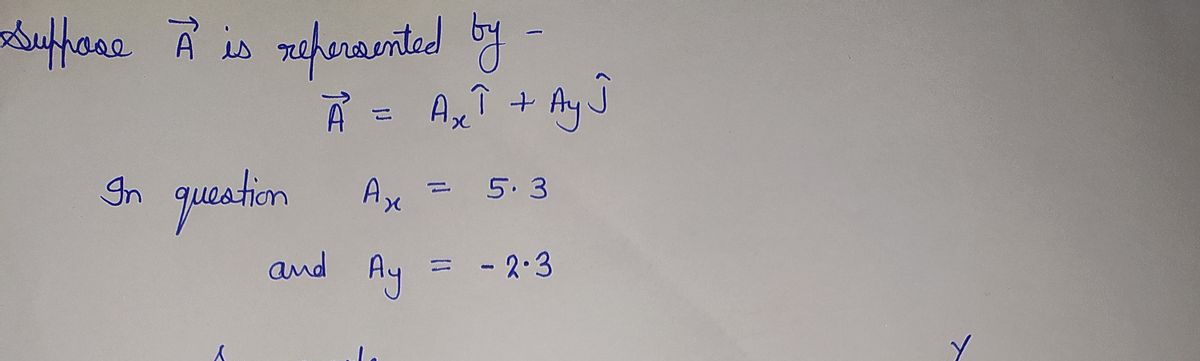 Suppose A⃗ is repersented by -
A⃗ = Aₓ î + Ay ĵ
In question Aₓ = 5.3
and Ay = - 2.3
Y